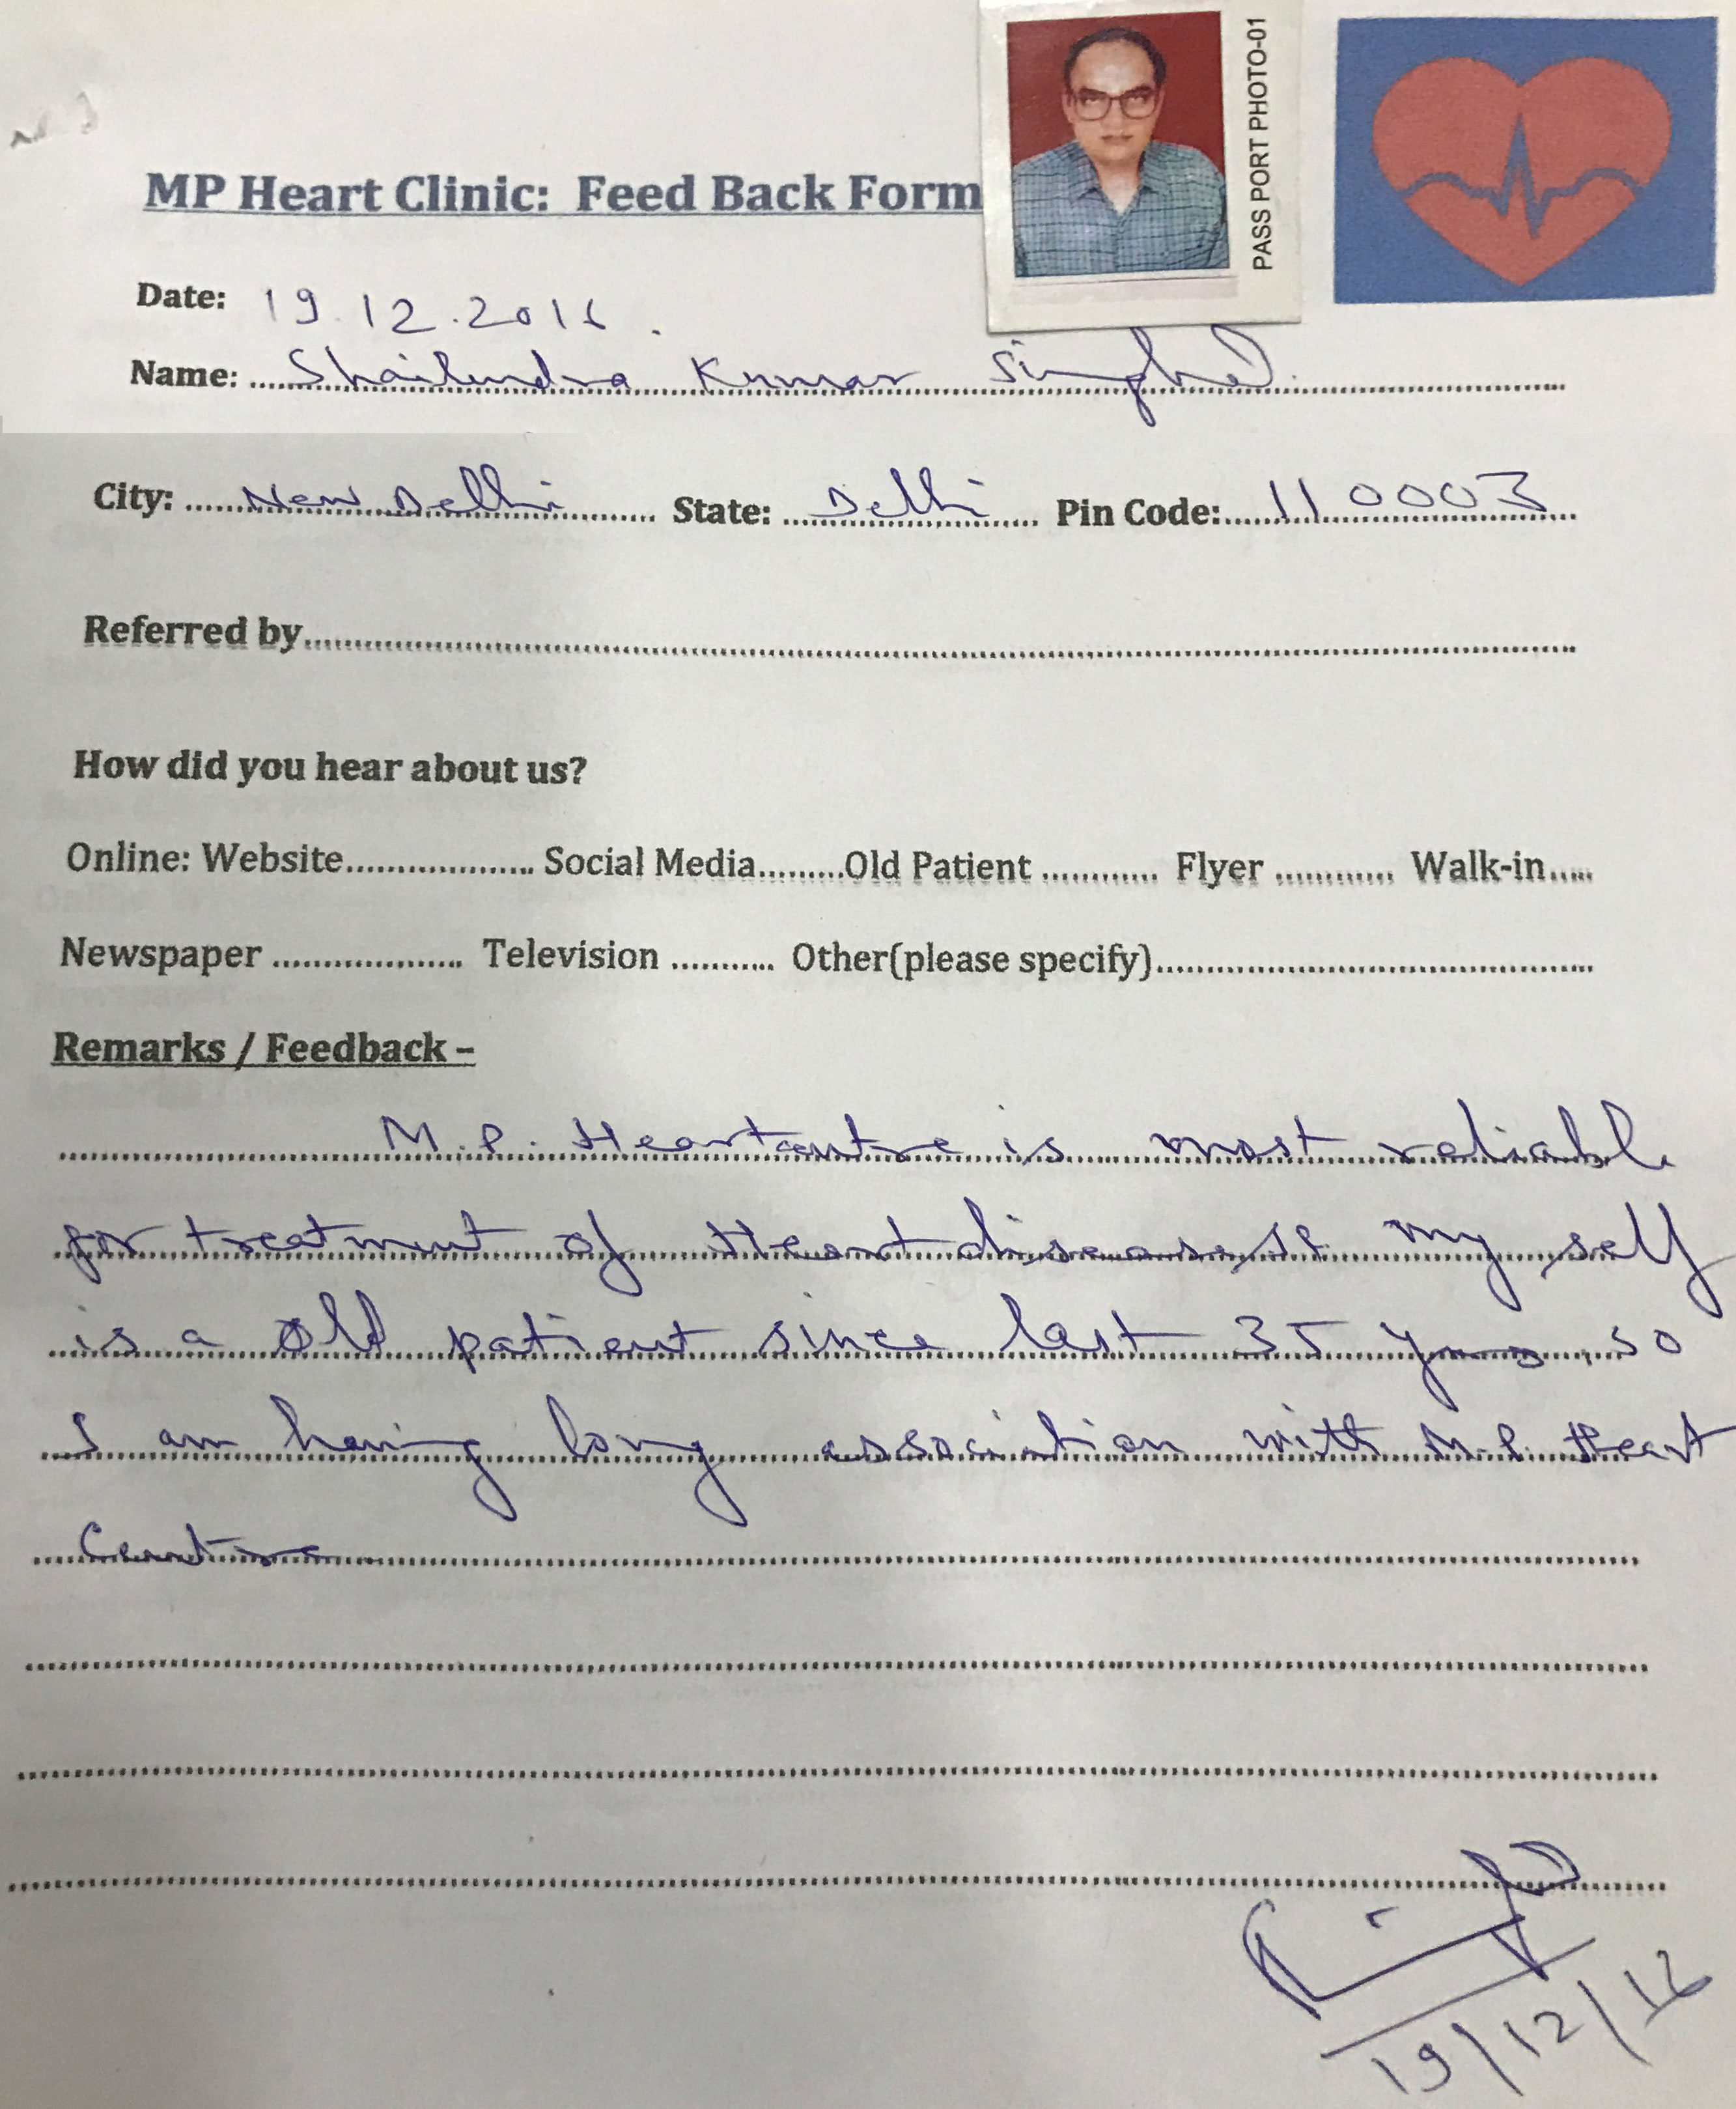 PASS PORT PHOTO-01
MP Heart Clinic: Feed Back Form
Date: 19.12.2016.
Name: Shailendra Kumar Singhal.
City: New Delhi State: Delhi Pin Code: 110003
Referred by
How did you hear about us?
Online: Website.................. Social Media.........Old Patient ............ Flyer ............ Walk-in.....
Newspaper ................... Television ........... Other(please specify)..........................................
Remarks / Feedback –
M.P. Heart centre is most reliable
for treatment of Heart disease my self
is a old patient since last 35 yrs so
I am having long association with M.P. Heart
Centre
19/12/16